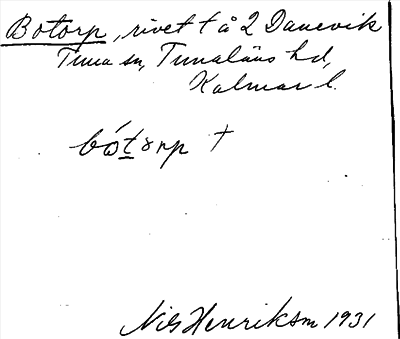 Botorp, rivet t å 2 Danevik
Tuna sn, Tunaläns hd,
Kalmar l.
bót̲ɤrp †
Nils Henriksm 1931